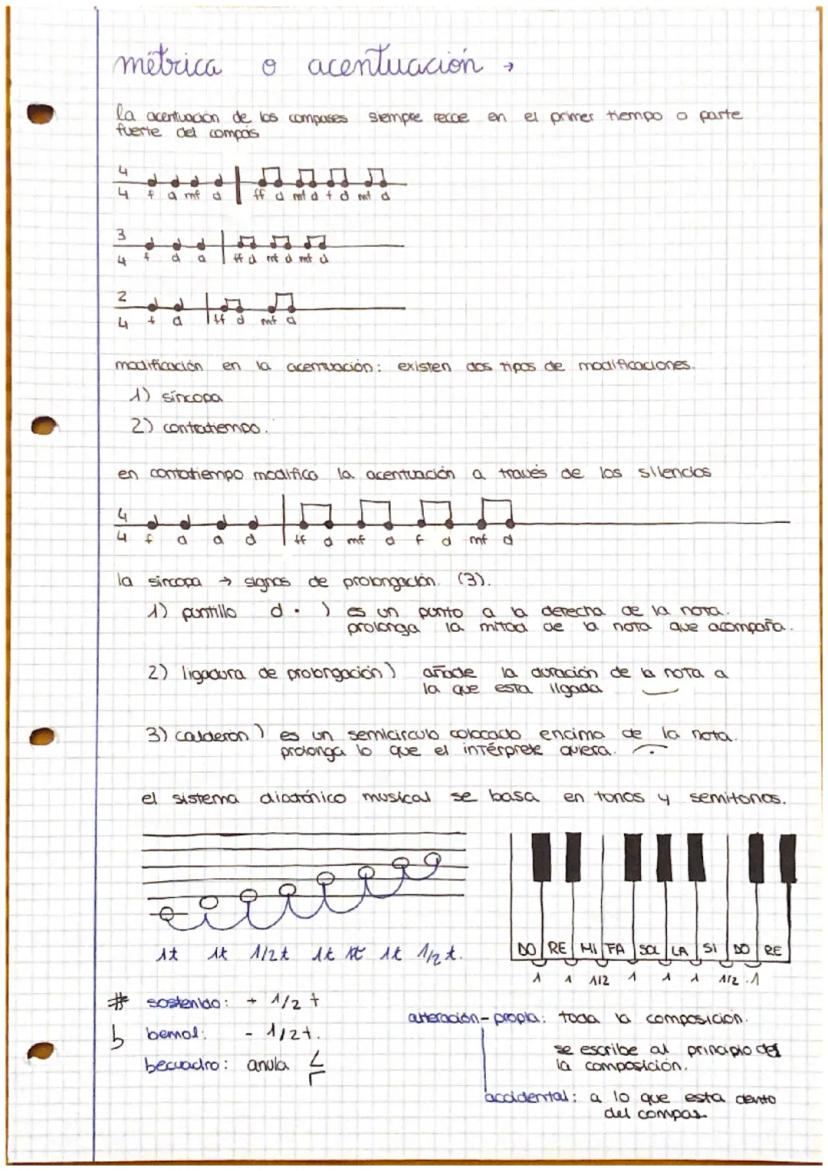 métrica o acentuación →
la acentuación de los compases siempre recae en el primer tiempo o parte
fuerte del compás
4
4 f d mf d ff d mf d f d mf d
3
4 f d d ff d mf d mf d
2
4 f d ff d mf d
modificación en la acentuación: existen dos tipos de modificaciones.
1) síncopa
2) contratiempo.
en contratiempo modifico la acentuación a través de los silencios
4
4 f d d d ff d mf d f d mf d
la síncopa → signos de prolongación. (3).
1) puntillo d. ) es un punto a la derecha de la nota.
prolonga la mitad de la nota que acompaña.
2) ligadura de prolongación) añade la duración de la nota a
la que esta ligada
3) calderón) es un semicirculo colocado encima de la nota.
prolonga lo que el intérprete quiera.
el sistema diatónico musical se basa en tonos y semitonos.
1t 1t 1/2t 1t 1t 1t 1/2t.
DO RE MI FA SOL LA SI DO RE
1 1 1/2 1 1 1 1/2 1
# sostenido: + 1/2 t
b bemol: - 1/2t.
becuadro: anula
alteración - propia: toda la composición.
se escribe al principio de
la composición.
accidental: a lo que esta dentro
del compas